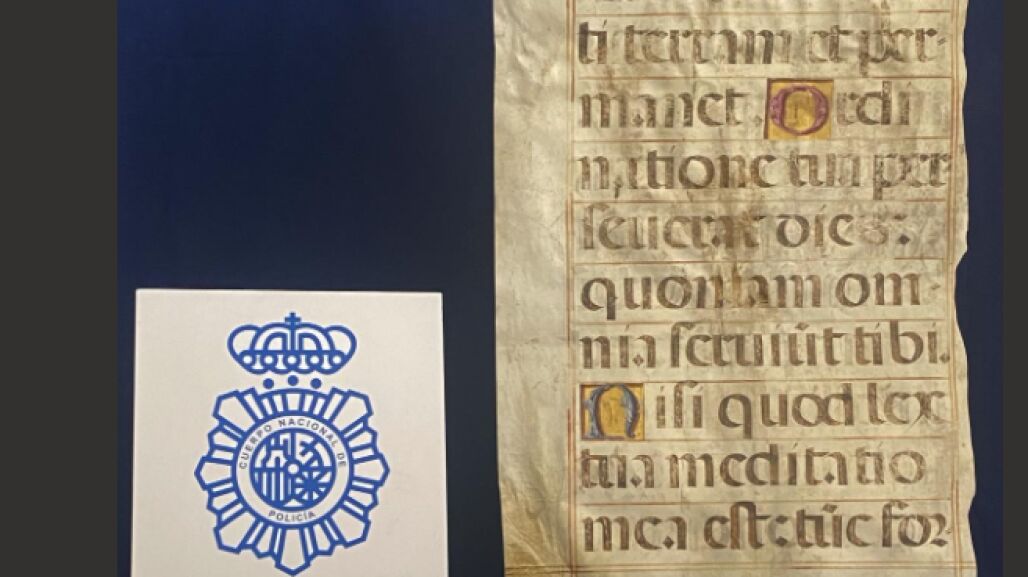 CUERPO NACIONAL DE
POLICÍA
ti terram et per-
manet. Ordi
natione tua per
ſeuerat dies:
quoniam om-
nia ſeruiūt tibi.
Niſi quod lex
tua meditatio
mea eſt: tūc for-